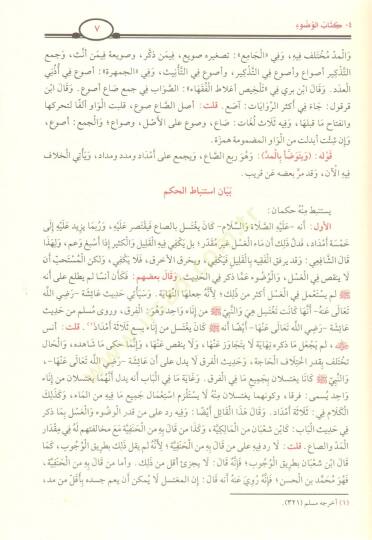 ٤- كتاب الوضوء ٧
والمد مختلف فيه، وفي «الجامع»: تصغيره صويع، فيمن ذكر، وصويعة فيمن أنث، وجمع
التذكير أصواع وأصوع في التذكير، وأصوع في التأنيث، وفي «الجمهرة»: أصوع في أدنى
العدد. وقال ابن بري في «تلخيص أغلاط الفقهاء»: الصواب في جمع صاع أصوع. وقال ابن
قرقول: جاء في أكثر الروايات: آصع. قلت: أصل الصاع صوع، قلبت الواو ألفا لتحركها
وانفتاح ما قبلها، وفيه ثلاث لغات: صاع، وصوع على الأصل، وصواع؛ والجمع: أصوع،
وإن شئت أبدلت من الواو المضمومة همزة.
قوله: (ويتوضأ بالمد): وهو ربع الصاع، ويجمع على أمداد ومدد ومداد، ويأتي الخلاف
فيه الآن، وقد مر بعضه عن قريب.
بيان استنباط الحكم
يستنبط منه حكمان:
الأول: أنه -عليه الصلاة والسلام- كان يغتسل بالصاع فيقتصر عليه، وربما يزيد عليه إلى
خمسة أمداد، فدل ذلك أن ماء الغسل غير مقدر؛ بل يكفي فيه القليل والكثير إذا أسبغ وعم، ولهذا
قال الشافعي: وقد يرفق الفقيه بالقليل فيكفي، ويخرق الأخرق، فلا يكفي، ولكن المستحب أن
لا ينقص في الغسل، والوضوء عما ذكر في الحديث. وقال بعضهم: فكأن أنسا لم يطلع على أنه
ﷺ لم يستعمل في الغسل أكثر من ذلك؛ لأنه جعلها النهاية. وسيأتي حديث عائشة -رضي الله
تعالى عنه- أنها كانت تغتسل هي والنبي ﷺ من إناء واحد وهو: الفرق، وروى مسلم من حديث
عائشة -رضي الله تعالى عنها- أيضا أنه ﷺ كان يغتسل من إناء يسع ثلاثة أمداد(١). قلت: أنس
-، لم يجعل ما ذكره نهاية لا يتجاوز عنها، ولا ينقص عنها، وإنما حكى ما شاهده، والحال
تختلف بقدر اختلاف الحاجة، وحديث الفرق لا يدل على أن عائشة -رضي الله تعالى عنها-،
والنبي ﷺ كانا يغتسلان بجميع ما في الفرق. وغاية ما في الباب أنه يدل أنهما يغتسلان من إناء
واحد يسمى: فرقا، وكونهما يغتسلان منه لا يستلزم استعمال جميع ما فيه من الماء، وكذلك
الكلام في: ثلاثة أمداد. وقال هذا القائل أيضا: وفيه رد على من قدر الوضوء والغسل بما ذكر
في حديث الباب: كابن شعبان من المالكية، وكذا من قال به من الحنفية مع مخالفتهم له في مقدار
المد والصاع. قلت: لا رد فيه على من قال به من الحنفية؛ لأنه لم يقل ذلك بطريق الوجوب، كما
قال ابن شعبان بطريق الوجوب؛ فإنه قال: لا يجزئ أقل من ذلك. وأما من قال به من الحنفية،
فهو محمد بن الحسن؛ فإنه روي عنه أنه قال: إن المغتسل لا يمكن أن يعم جسده بأقل من مد،
(١) أخرجه مسلم (٣٢١).